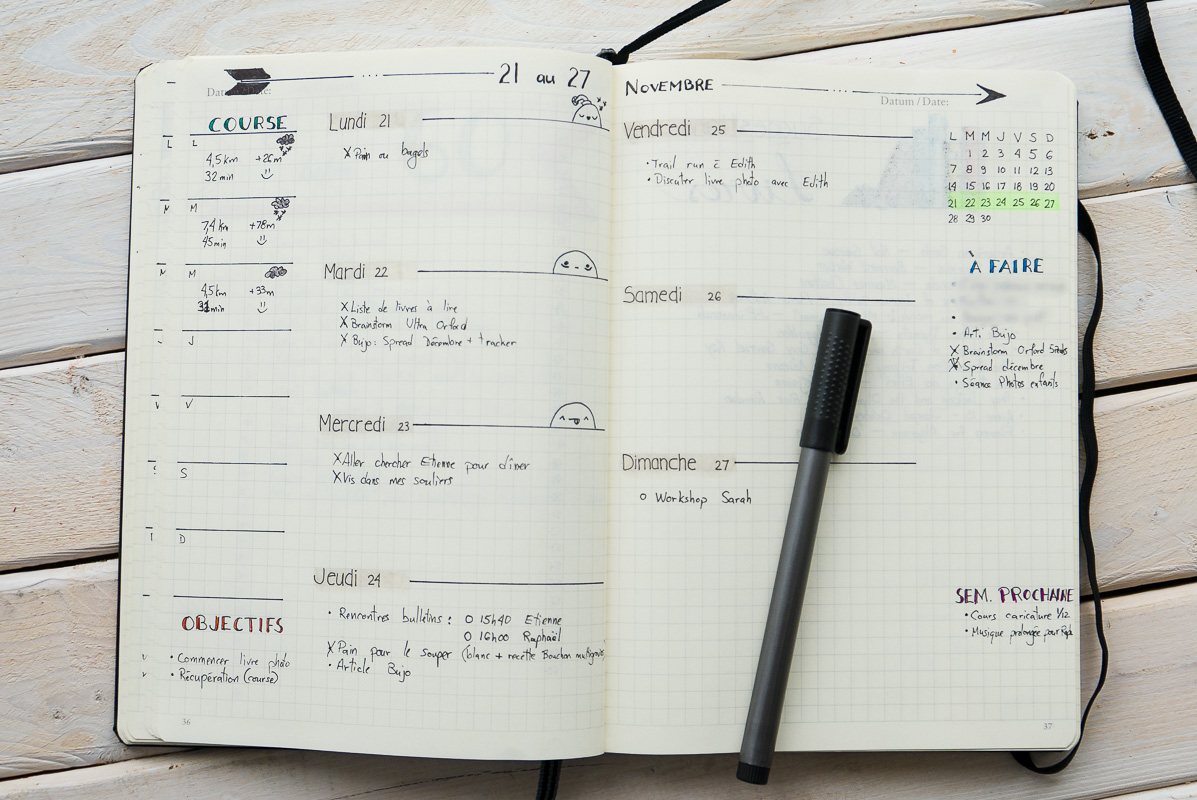 21 au 27
Datum/Date:
COURSE
L
4,5 km +26m
32 min
M
7,4 km +78m
45 min
M
4,5 km +33m
31 min
J
V
S
D
OBJECTIFS
• Commencer livre photo
• Récupération (course)
36
Lundi 21
X Pain ou bagels
Mardi 22
X Liste de livres à lire
X Brainstorm Ultra Orford
X Bujo : Spread Décembre + tracker
Mercredi 23
X Aller chercher Etienne pour dîner
X Vis dans mes souliers
Jeudi 24
• Rencontres bulletins : O 15h40 Etienne
O 16h00 Raphaël
X Pain pour le souper (blanc + recette Bouchon multigrains)
• Article Bujo
NOVEMBRE
Datum/Date:
Vendredi 25
• Trail run c̄ Edith
• Discuter livre photo avec Edith
Samedi 26
Dimanche 27
O Workshop Sarah
L M M J V S D
1 2 3 4 5 6
7 8 9 10 11 12 13
14 15 16 17 18 19 20
21 22 23 24 25 26 27
28 29 30
À FAIRE
• Arti Bujo
X Brainstorm Orford
X Spread décembre
• Séance Photos enfants
SEM. PROCHAINE
• Cours caricature 1/12
• Musique prolongée pour
37